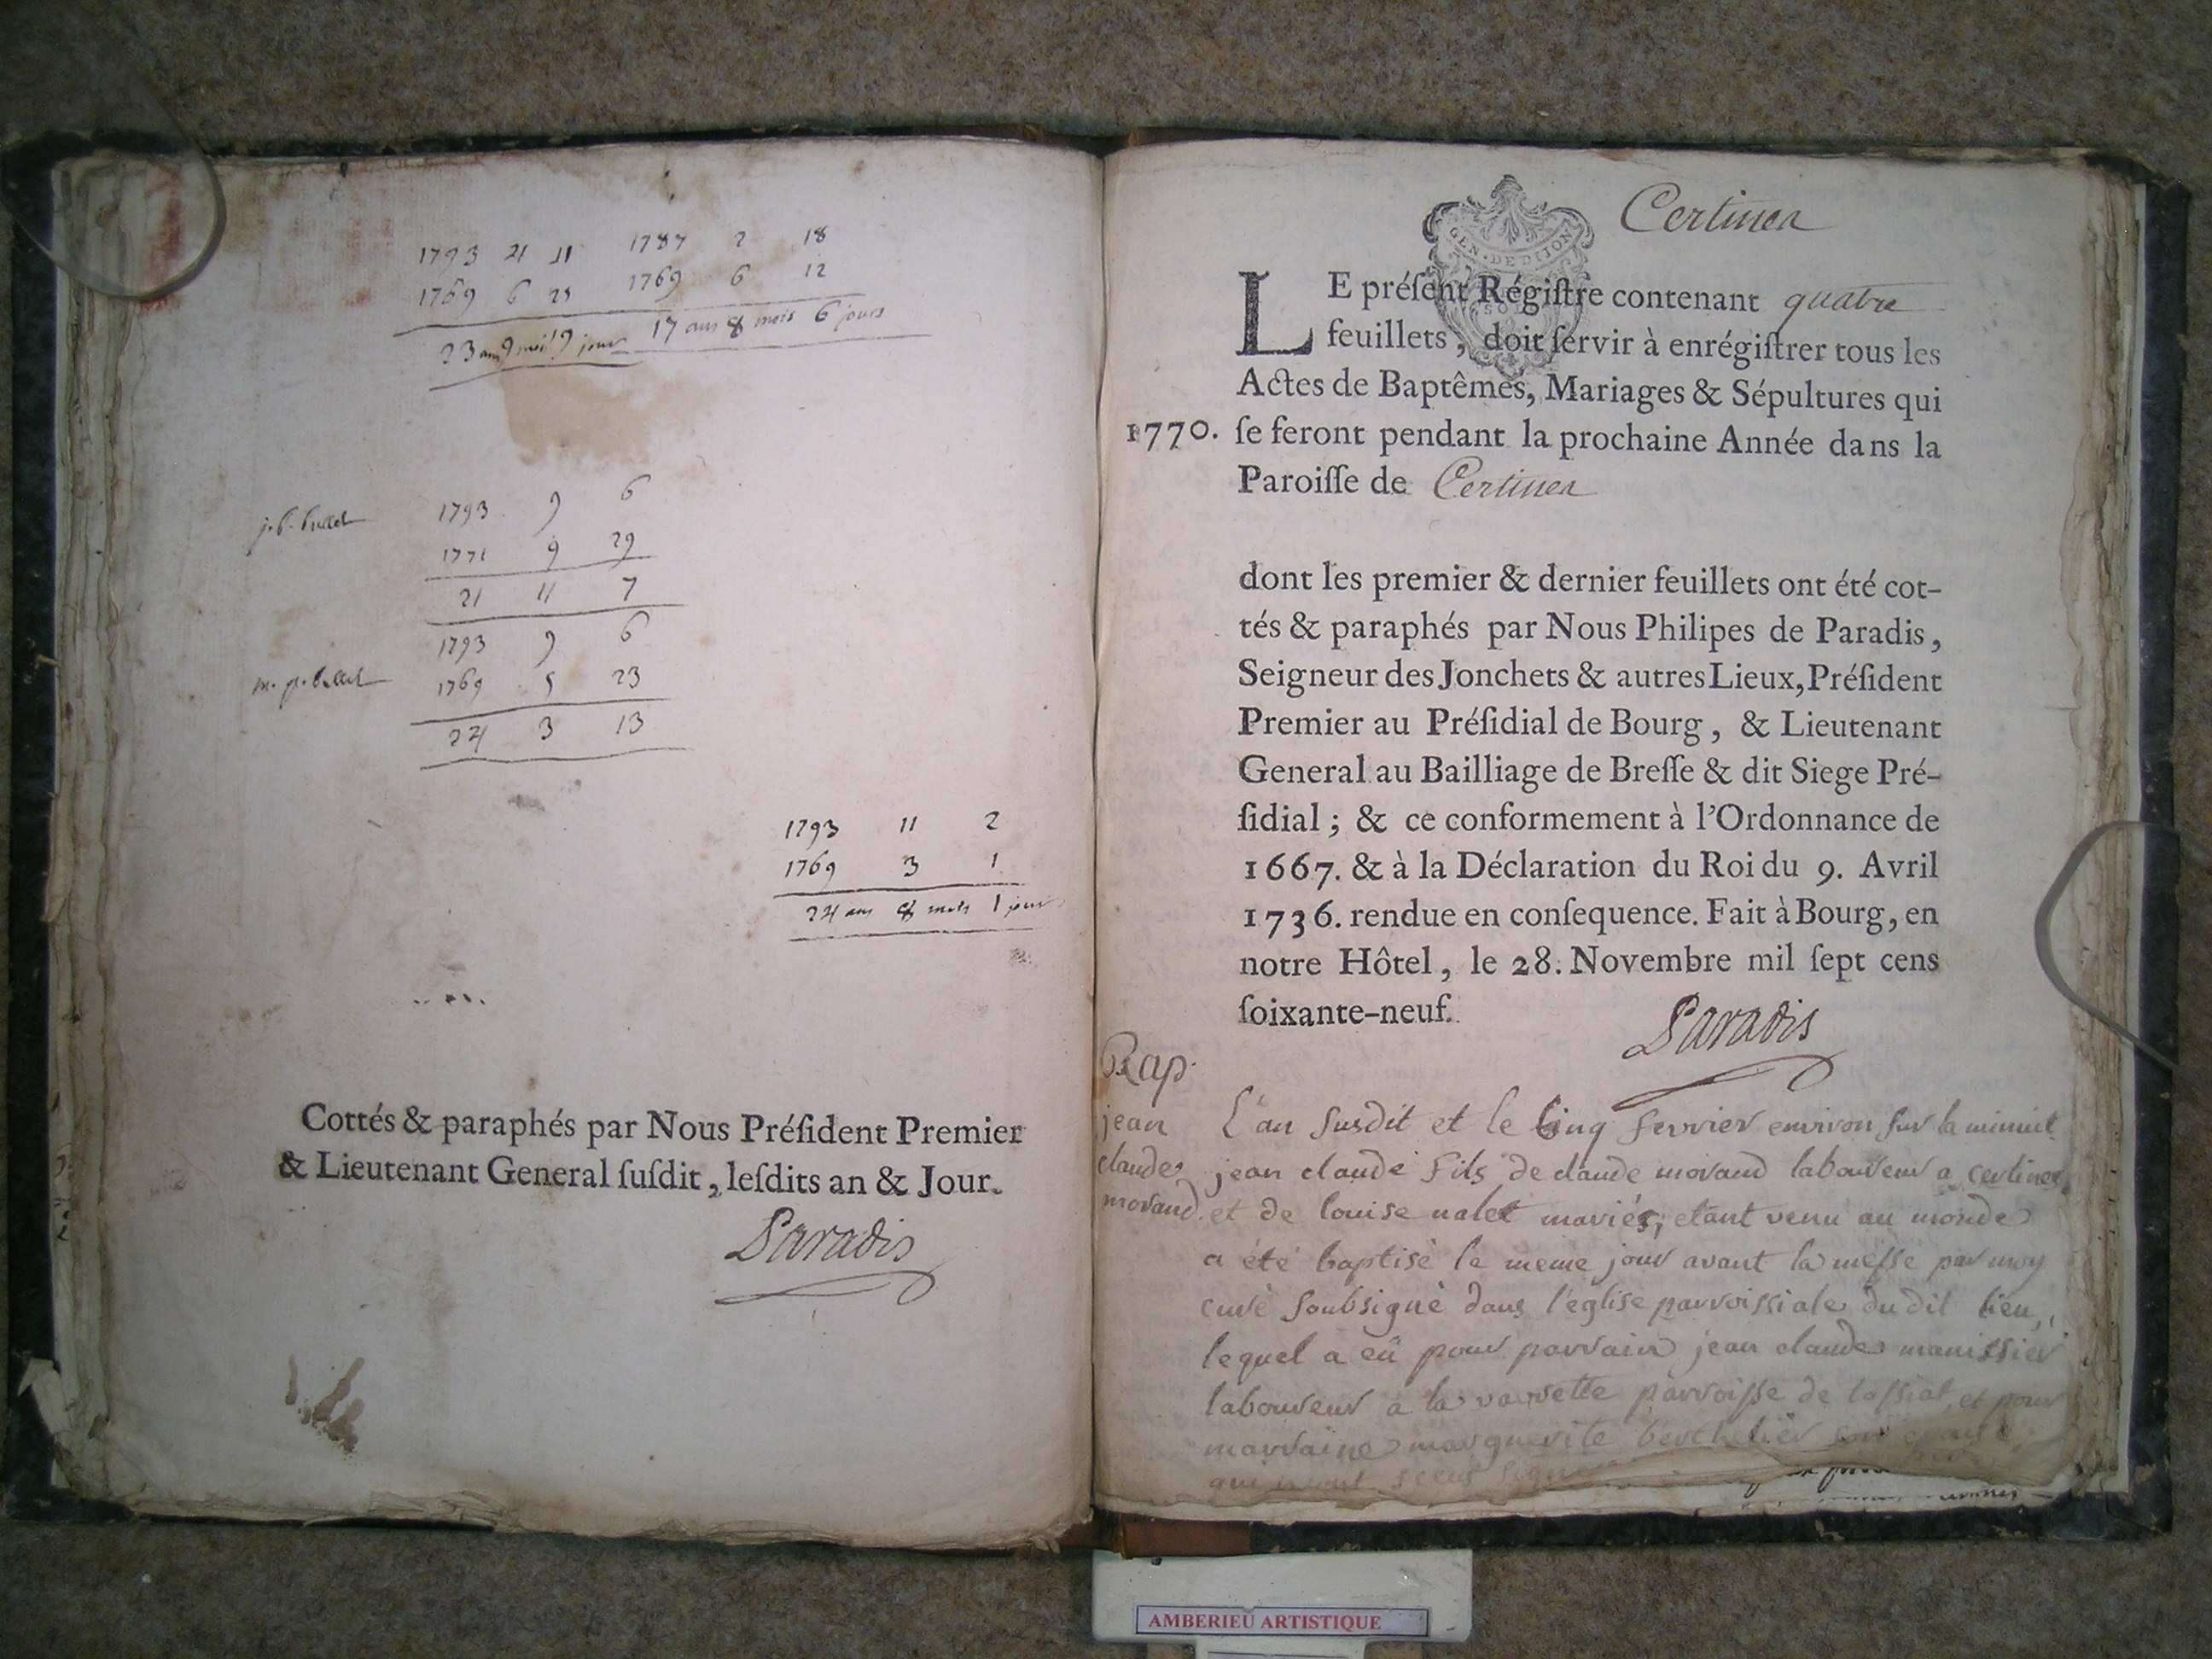 1793 4 11 1787 2 18
1769 6 25 1769 6 12
23 ans 9 mois 9 jours 17 ans 8 mois 6 jours
j. b. bullet 1793 9 6
1771 9 29
21 11 7
1793 9 6
m. p. bullet 1769 5 23
24 3 13
1793 11 2
1769 3 1
24 ans 8 mois 1 jour
Cottés & paraphés par Nous Préſident Premier
& Lieutenant General ſuſdit, leſdits an & Jour.
Paradis
Certines
GEN. DE DIJON
LE préſent Régiſtre contenant quatre
feuillets, doit ſervir à enrégiſtrer tous les
Actes de Baptêmes, Mariages & Sépultures qui
1770. ſe feront pendant la prochaine Année dans la
Paroiſſe de Certines
dont les premier & dernier feuillets ont été cot-
tés & paraphés par Nous Philipes de Paradis,
Seigneur des Jonchets & autres Lieux, Préſident
Premier au Préſidial de Bourg, & Lieutenant
General au Bailliage de Breſſe & dit Siege Pré-
ſidial ; & ce conformement à l'Ordonnance de
1667. & à la Déclaration du Roi du 9. Avril
1736. rendue en conſequence. Fait à Bourg, en
notre Hôtel, le 28. Novembre mil ſept cens
ſoixante-neuf.
Paradis
Bap.
jean
claude
morand
L'an susdit et le cinq fevrier environ sur la minuit
jean claude fils de claude morand laboureur a certines
et de louise nalet mariés, etant venu au monde
a été baptisé le meme jour avant la messe par moy
curé soubsigné dans l'eglise parroissiale du dit lieu,
lequel a eü pour parrain jean claude manissier
laboureur a la parroisse de et pour
marraine marguerite
AMBERIEU ARTISTIQUE